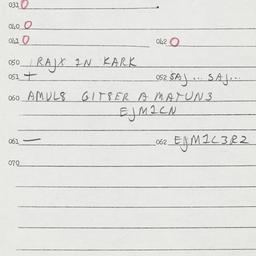 031 0
040 0
041 0 042 0
050 IRAJX IN KARK
051 + 052 SAJ... SAJ...
060 AMULS GITSER A MATUNS
EJMICN
061 — 062 EJMIC3R2
070